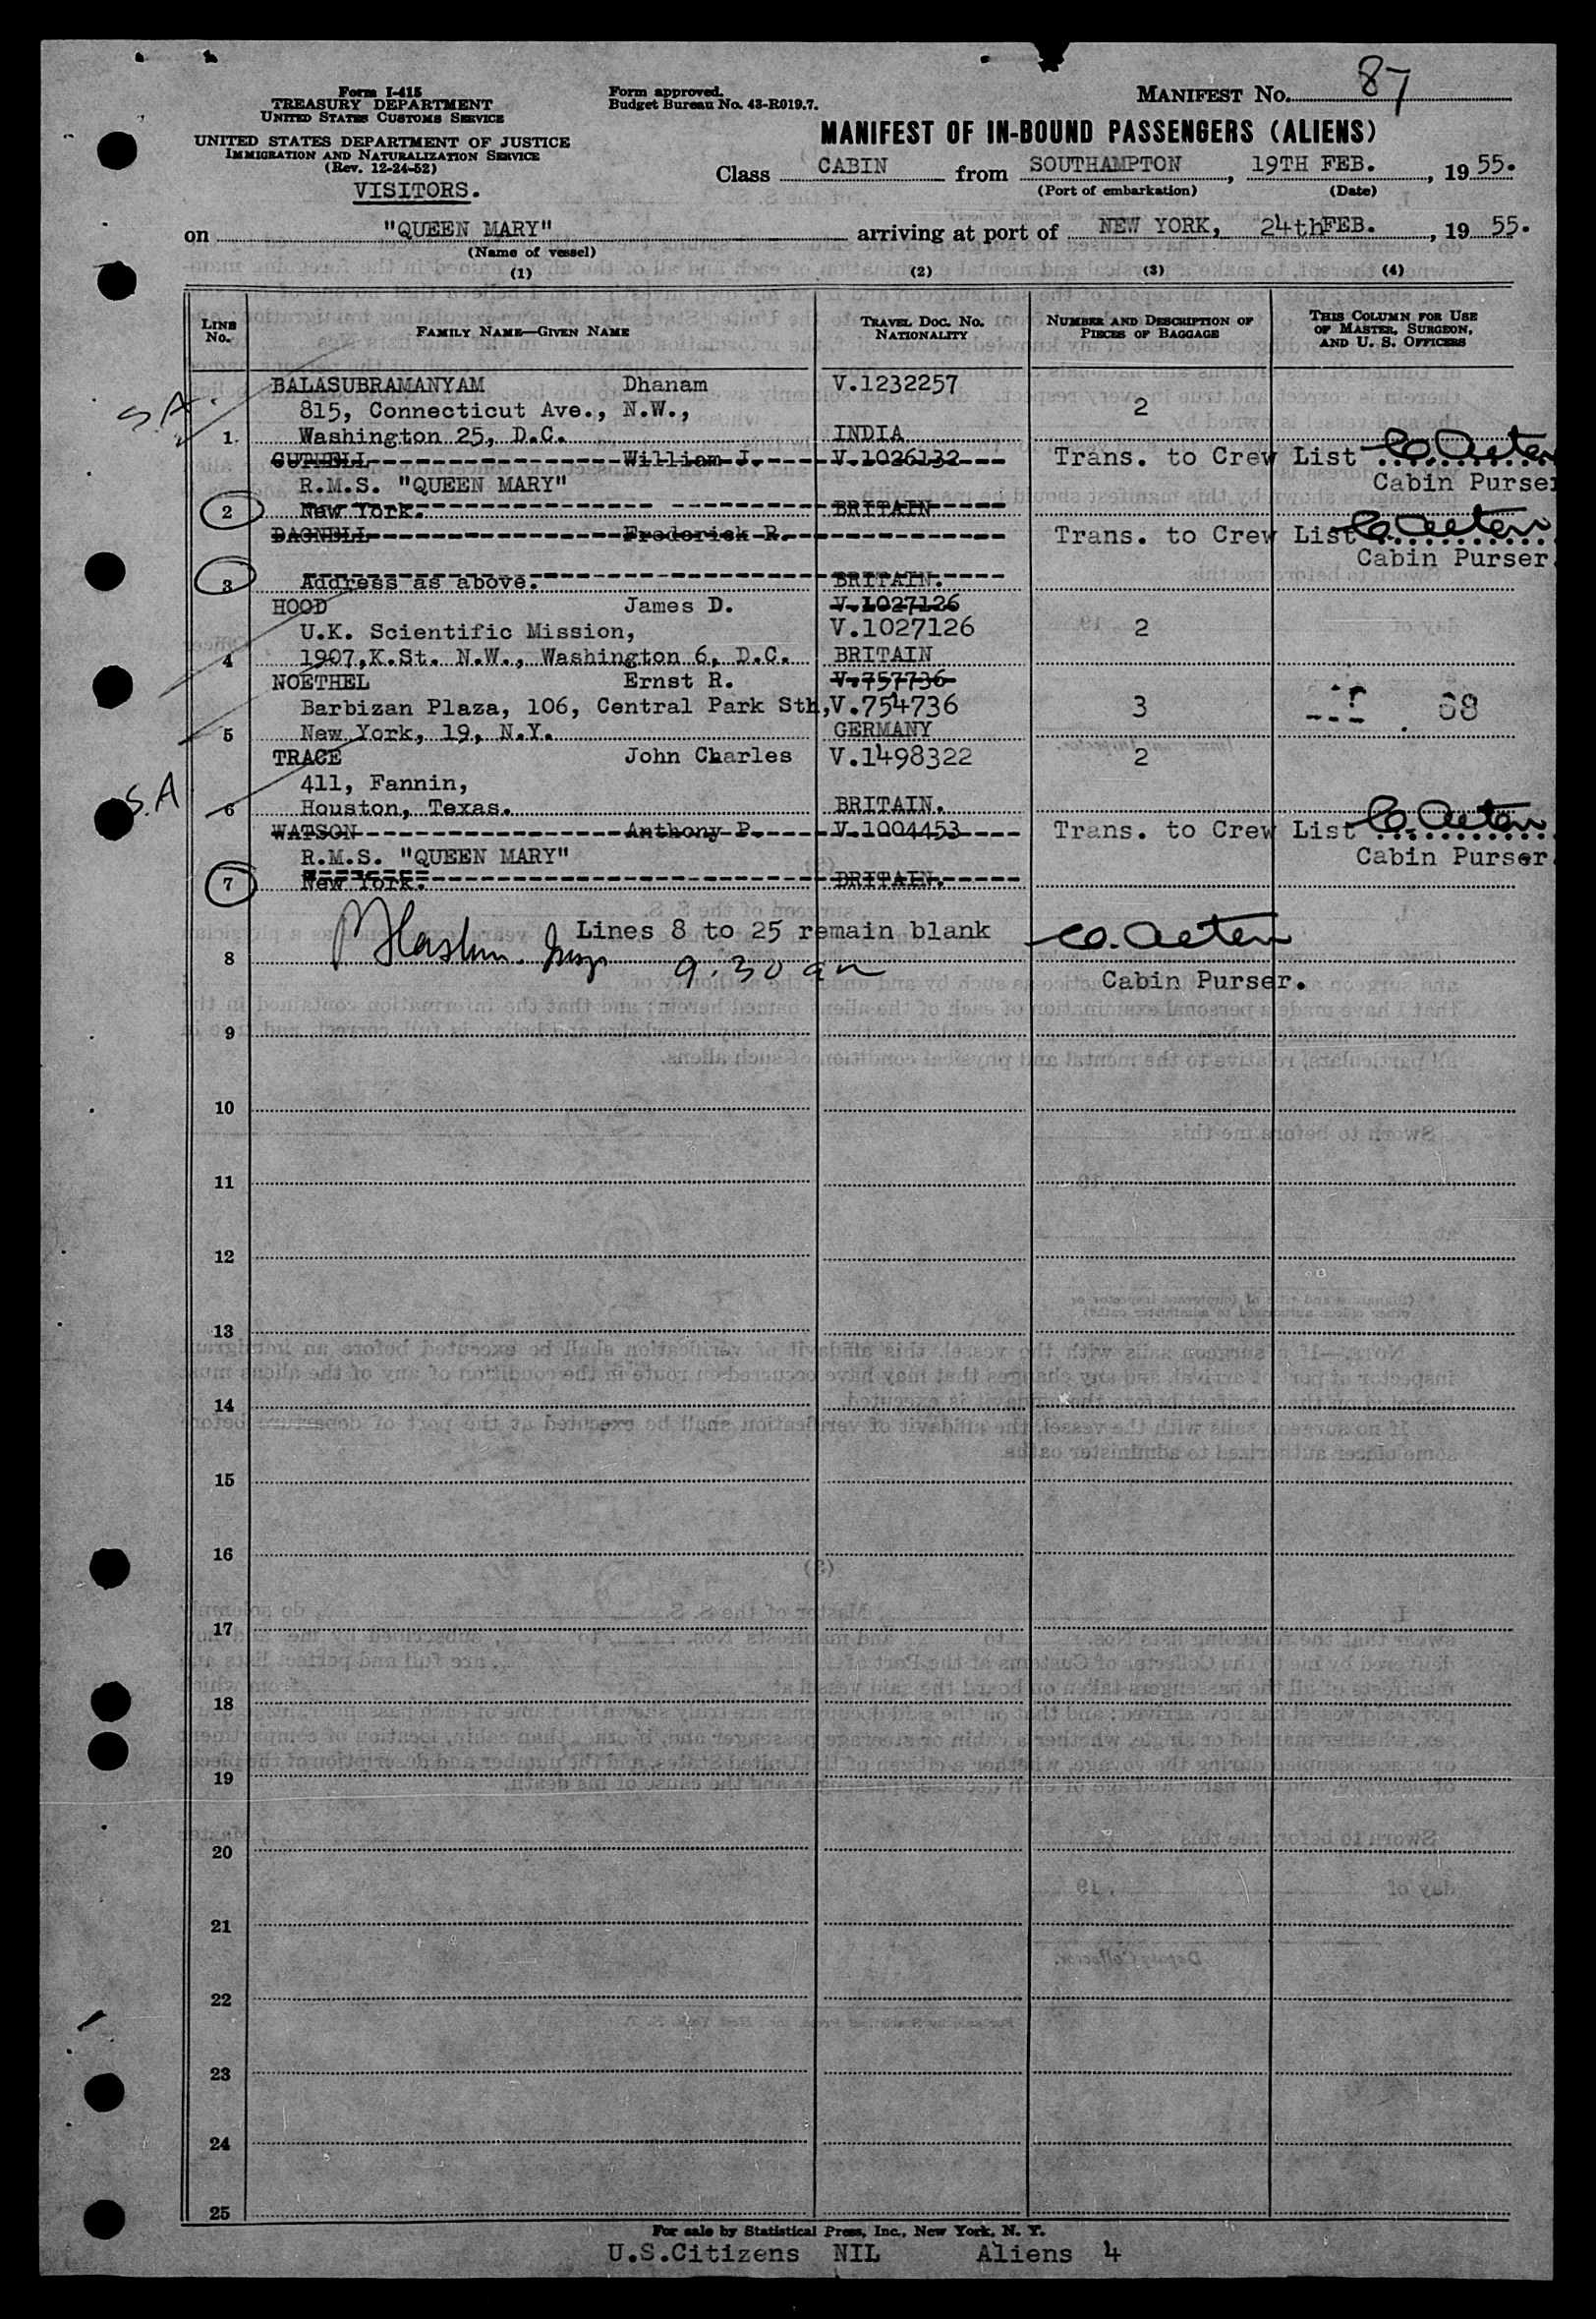 Form I-415
TREASURY DEPARTMENT
UNITED STATES CUSTOMS SERVICE
UNITED STATES DEPARTMENT OF JUSTICE
IMMIGRATION AND NATURALIZATION SERVICE
(Rev. 12-24-52)
VISITORS.
Form approved.
Budget Bureau No. 43-R019.7.
MANIFEST No. 87
MANIFEST OF IN-BOUND PASSENGERS (ALIENS)
Class CABIN from SOUTHAMPTON, 19TH FEB., 1955.
(Port of embarkation) (Date)
on "QUEEN MARY" arriving at port of NEW YORK, 24thFEB., 1955.
(Name of vessel)
(1) (2) (3) (4)
LINE No. FAMILY NAME—GIVEN NAME TRAVEL DOC. No. NATIONALITY NUMBER AND DESCRIPTION OF PIECES OF BAGGAGE THIS COLUMN FOR USE OF MASTER, SURGEON, AND U. S. OFFICERS
S.A. BALASUBRAMANYAM Dhanam V.1232257
815, Connecticut Ave., N.W., 2
1 Washington 25, D.C. INDIA
William J. V.1026132 Trans. to Crew List
R.M.S. "QUEEN MARY" Cabin Purser
2 New York. BRITAIN
DAGNELL Frederick R. Trans. to Crew List
Cabin Purser.
3 Address as above. BRITAIN.
HOOD James D. V.1027126
U.K. Scientific Mission, V.1027126 2
4 1907,K.St. N.W., Washington 6, D.C. BRITAIN
NOETHEL Ernst R. V.757736
Barbizan Plaza, 106, Central Park Sth, V.754736 3 68
5 New York, 19, N.Y. GERMANY
TRACE John Charles V.1498322 2
S.A 411, Fannin,
6 Houston, Texas. BRITAIN.
WATSON Anthony P. V.1004453 Trans. to Crew List
R.M.S. "QUEEN MARY" Cabin Purser.
7 New York. BRITAIN.
Lines 8 to 25 remain blank
8 9.30 am
Cabin Purser.
9
10
11
12
13
14
15
16
17
18
19
20
21
22
23
24
25
For sale by Statistical Press, Inc., New York, N. Y.
U.S.Citizens NIL Aliens 4